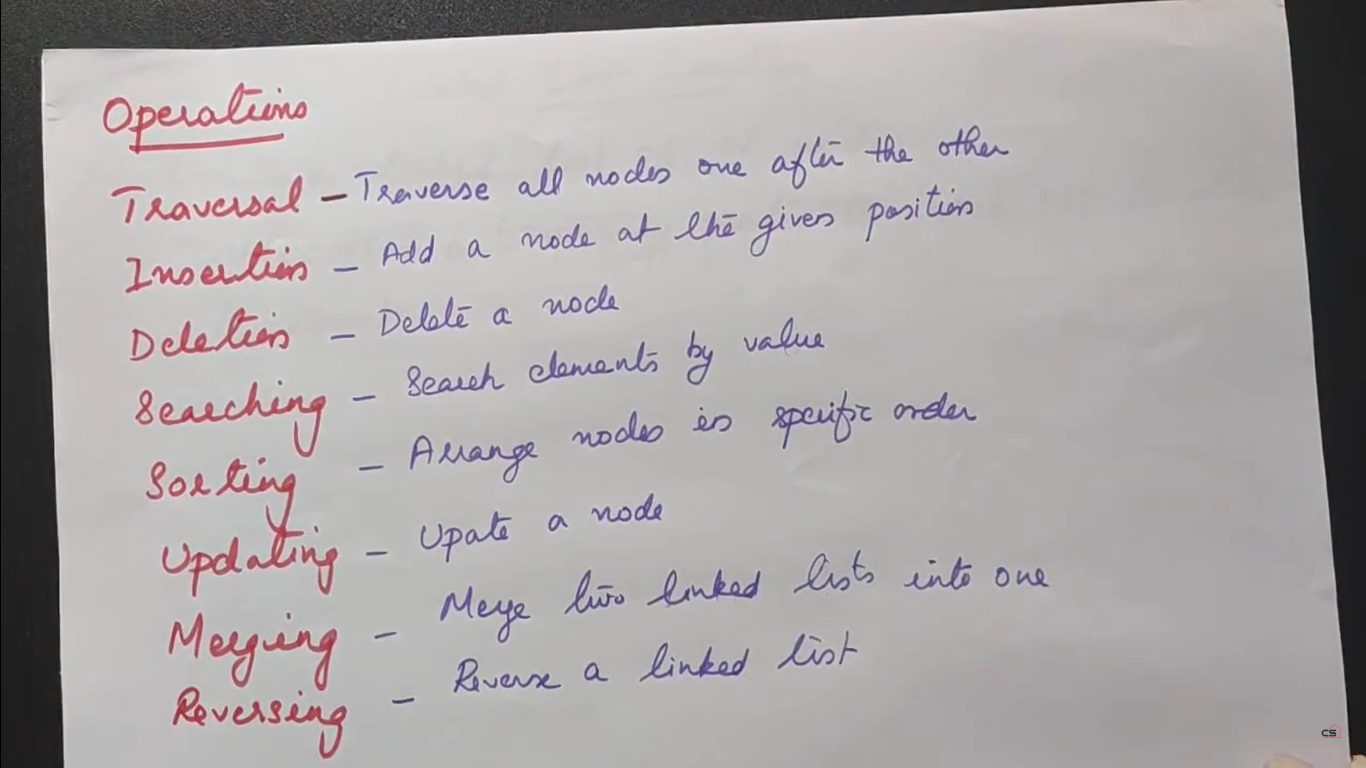 Operations
Traversal - Traverse all nodes one after the other
Insertion - Add a node at the given position
Deletion - Delete a node
Searching - Search elements by value
Sorting - Arrange nodes in specific order
Updating - Upate a node
Merging - Merge two linked lists into one
Reversing - Reverse a linked list
CS